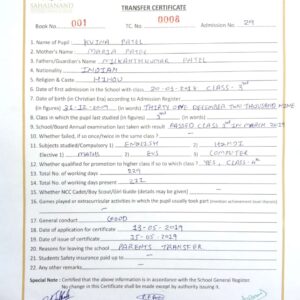 SAHAJANAND
TRANSFER CERTIFICATE
Book No. 001 TC. No. 0008 Admission No. 29
1. Name of Pupil : KVINA PATEL
2. Mother's Name : MARIA PATEL
3. Fathers/Guardian's Name NILKANTHKUMAR PATEL
4. Nationality INDIAN
5. Religion & Caste HINDU
6. Date of first admission in the School with class 20-01-2018 CLASS - 3rd
7. Date of birth (in Christian Era) according to Admission Register
(in figures) 31-12-2009 (in words) THIRTY ONE DECEMBER TWO THOUSAND NINE
8. Class in which the pupil last studied (in figures) 3rd (in words)
9. School/Board Annual examination last taken with result PASSED CLASS 3rd IN MARCH 2019
10. Whether failed, if so once/twice in the same class ?
11. Subjects studied/Compulsory 1) ENGLISH HINDI
Elective 1) MATHS EVS COMPUTER
12. Whether qualified for promotion to higher class if so to which class ? YES, CLASS-4th
13. Total No. of working days 229
14. Total No. of working days present 222
15. Whether NCC Cadet/Boy Scout/Girl Guide (details may be given)
16. Games played or extracurricular activities in which the pupil usually took part (mention achievement level therein)
17. General conduct GOOD
18. Date of application for certificate 13-05-2019
19. Date of issue of certificate 15-05-2019
20. Reasons for leaving PARENTS TRANSFER
21. Students Safety insurance paid up to
22. Any other remarks
Special Note : Certified that the above information is in accordance with the School General Register.
No change in this Certificate shall be made except by authority issuing it.